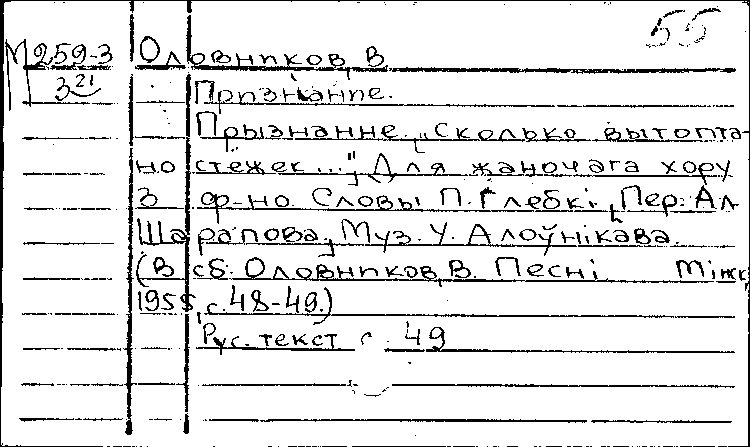 55
М 259-3 Оловников, В.
3 21
Признание.
Прызнанне. "Сколько вытопта-
но стёжек...", Для жаночага хору
з ф-но. Словы П. Глебкі, Пер. Ал.
Шарапова, Муз. У. Алоўнікава.
(В сб: Оловников, В. Песні Мінск,
1958, с. 48-49.)
Рус. текст с. 49